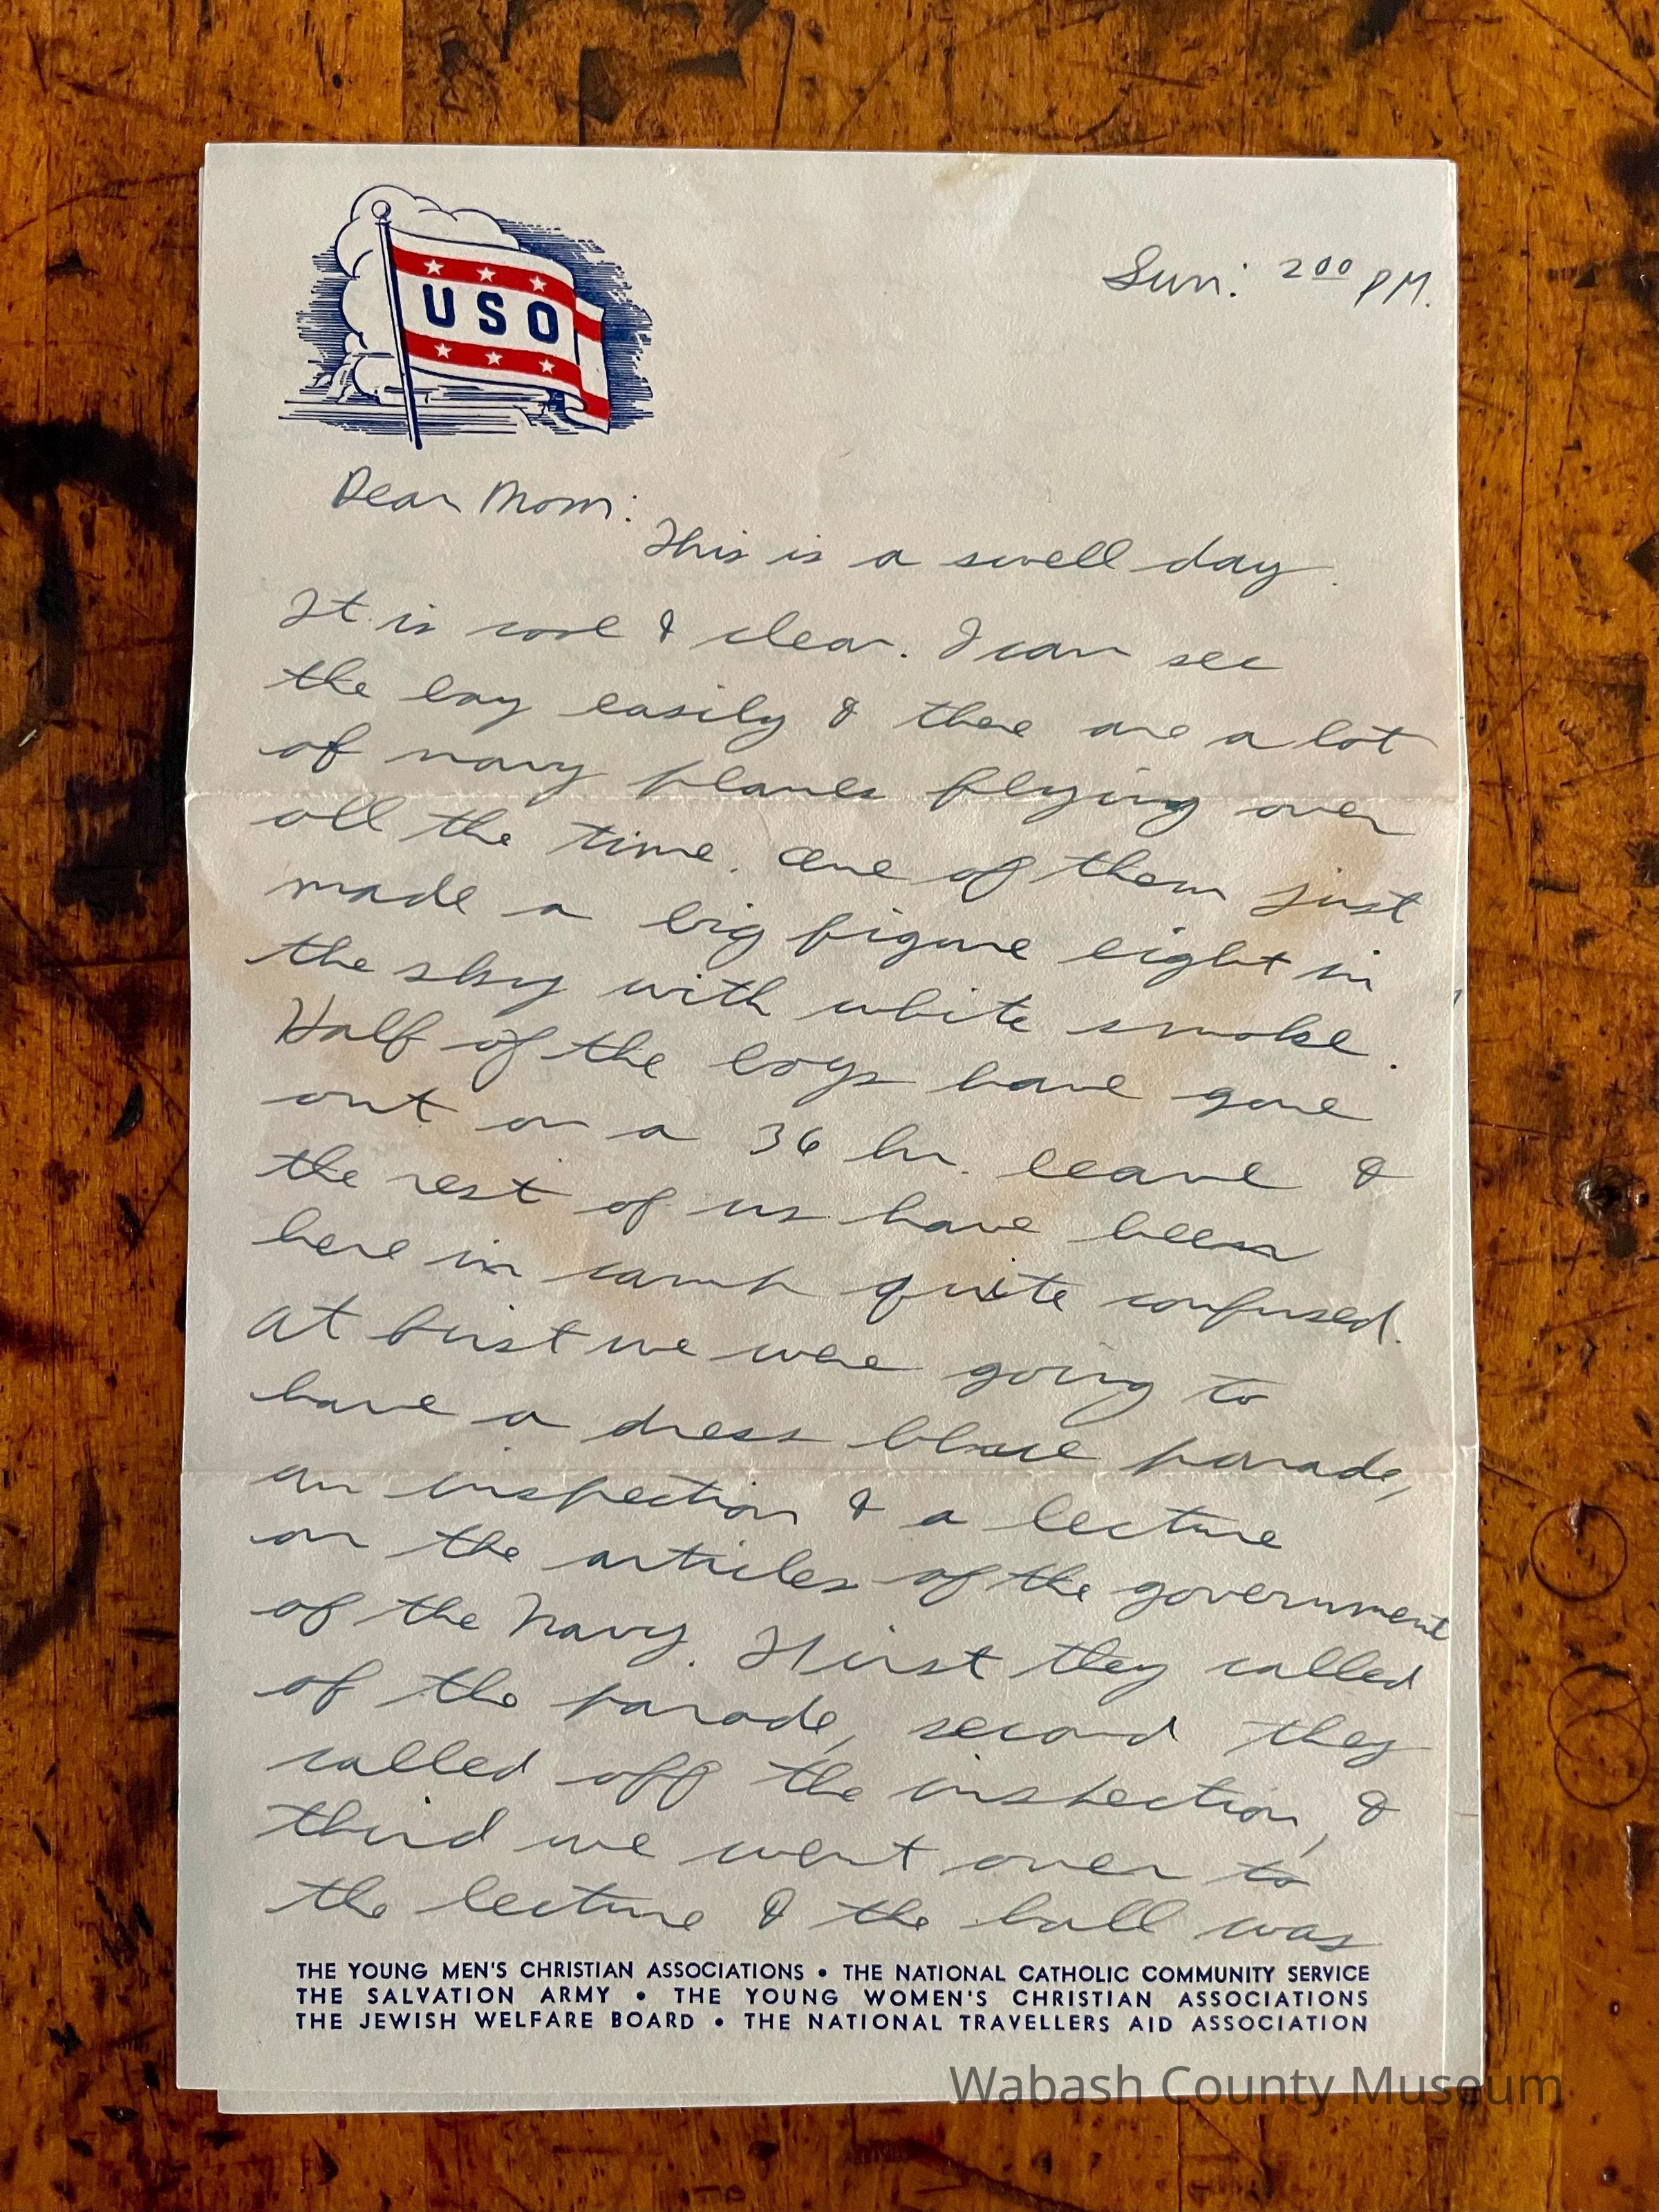 USO
Sun: 2⁰⁰ PM.
Dear Mom:
This is a swell day.
It is cool & clear. I can see
the bay easily & there are a lot
of navy planes flying over
all the time. One of them just
made a big figure eight in
the sky with white smoke.
Half of the boys have gone
out on a 36 hr. leave &
the rest of us have been
here in camp quite confused.
At first we were going to
have a dress blue parade,
an inspection & a lecture
on the articles of the government
of the Navy. First they called
of the parade, second they
called off the inspection, &
third we went over to
the lecture & the hall was
THE YOUNG MEN'S CHRISTIAN ASSOCIATIONS • THE NATIONAL CATHOLIC COMMUNITY SERVICE
THE SALVATION ARMY • THE YOUNG WOMEN'S CHRISTIAN ASSOCIATIONS
THE JEWISH WELFARE BOARD • THE NATIONAL TRAVELLERS AID ASSOCIATION
Wabash County Museum